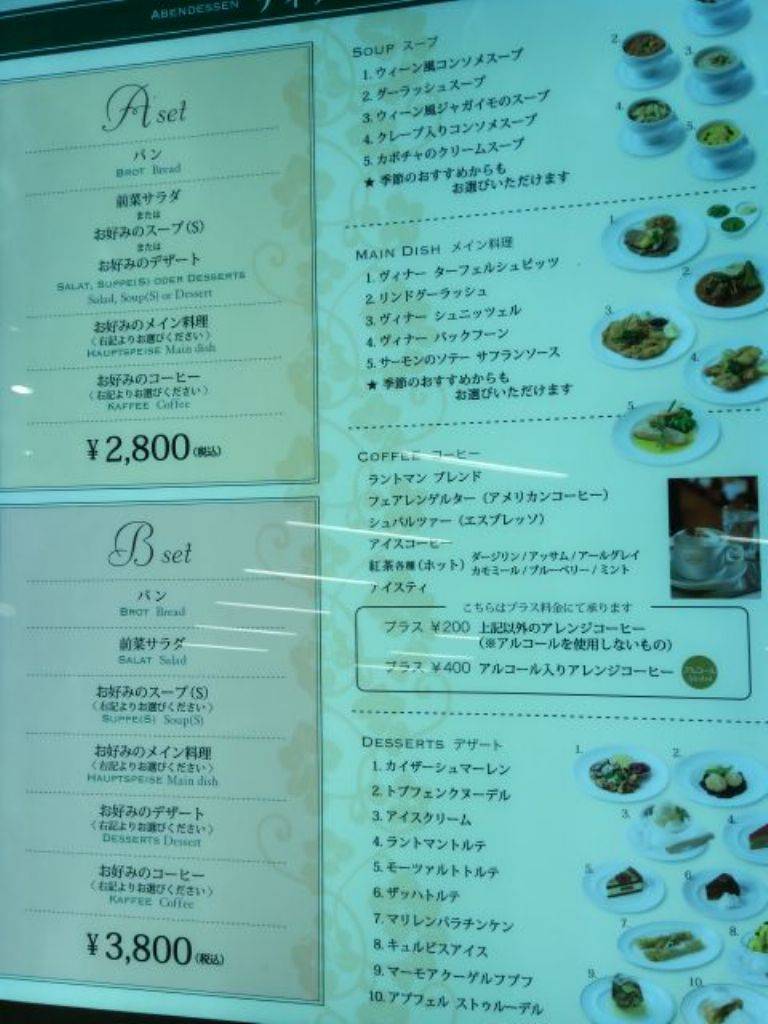 ABENDESSEN
A set
パン
BROT Bread
前菜サラダ
または
お好みのスープ(S)
または
お好みのデザート
SALAT, SUPPE(S) ODER DESSERTS
Salad, Soup(S) or Dessert
お好みのメイン料理
〈右記よりお選びください〉
HAUPTSPEISE Main dish
お好みのコーヒー
〈右記よりお選びください〉
KAFFEE Coffee
¥2,800(税込)
B set
パン
BROT Bread
前菜サラダ
SALAT Salad
お好みのスープ(S)
〈右記よりお選びください〉
SUPPE(S) Soup(S)
お好みのメイン料理
〈右記よりお選びください〉
HAUPTSPEISE Main dish
お好みのデザート
〈右記よりお選びください〉
DESSERTS Dessert
お好みのコーヒー
〈右記よりお選びください〉
KAFFEE Coffee
¥3,800(税込)
SOUP スープ
1. ウィーン風コンソメスープ
2. グーラッシュスープ
3. ウィーン風ジャガイモのスープ
4. クレープ入りコンソメスープ
5. カボチャのクリームスープ
★ 季節のおすすめからも
お選びいただけます
2.
3.
4.
5.
MAIN DISH メイン料理
1. ヴィナー ターフェルシュピッツ
2. リンドグーラッシュ
3. ヴィナー シュニッツェル
4. ヴィナー バックフーン
5. サーモンのソテー サフランソース
★ 季節のおすすめからも
お選びいただけます
1.
2.
3.
4.
5.
COFFEE コーヒー
ラントマン ブレンド
フェアレンゲルター（アメリカンコーヒー）
シュバルツァー（エスプレッソ）
アイスコーヒー
紅茶各種（ホット） ダージリン / アッサム / アールグレイ
カモミール / ブルーベリー / ミント
アイスティ
こちらはプラス料金にて承ります
プラス ¥200 上記以外のアレンジコーヒー
（※アルコールを使用しないもの）
プラス ¥400 アルコール入りアレンジコーヒー アルコール
DESSERTS デザート
1. カイザーシュマーレン
2. トプフェンクヌーデル
3. アイスクリーム
4. ラントマントルテ
5. モーツァルトトルテ
6. ザッハトルテ
7. マリレンパラチンケン
8. キュルビスアイス
9. マーモアクーゲルフプフ
10. アプフェル ストゥルーデル
1.
2.
3.
4.
5.
6.
7.
8.
9.
10.